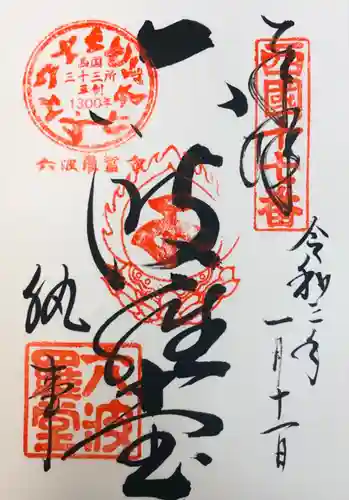 奉拝
西國十七番
令和二年
一月十一日
六波羅堂
西国
三十三所
草創
1300年
六波羅蜜寺
納
六波
羅堂